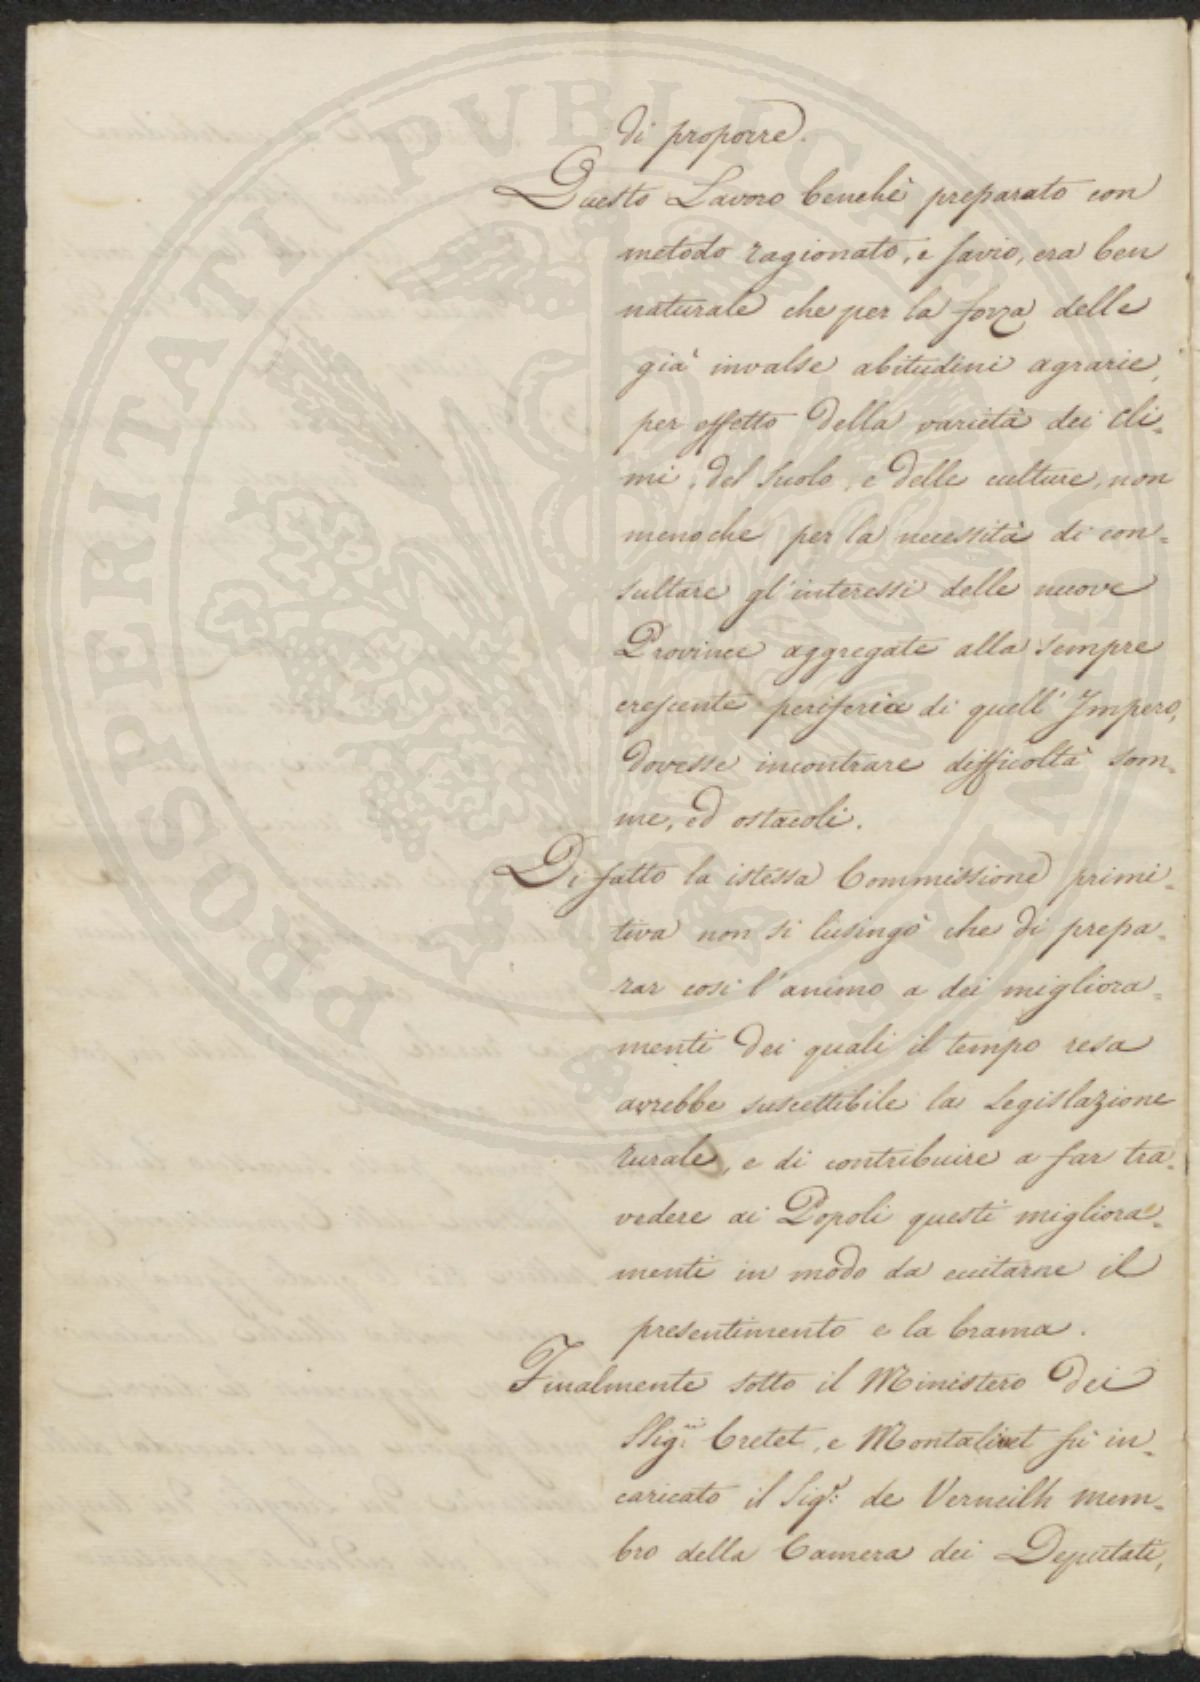 di proporre.
Questo Lavoro benchè preparato con
metodo ragionato, e savio, era ben
naturale che per la forza delle
già invalse abitudini agrarie,
per effetto della varietà dei Cli=
mi, del Suolo, e delle culture, non
meno che per la necessità di con=
sultare gl'interessi delle nuove
Provincie aggregate alla sempre
crescente periferia di quell'Impero,
dovesse incontrare difficoltà som=
me, ed ostacoli.
Di fatto la istessa Commissione primi=
tiva non si lusingò che di prepa=
rar così l'animo a dei migliora=
menti dei quali il tempo resa
avrebbe suscettibile la Legislazione
rurale, e di contribuire a far tra=
vedere ai Popoli questi migliora=
menti in modo da eccitarne il
presentimento e la brama.
Finalmente sotto il Ministero dei
SSig.ri Cretet, e Montalivet fù in=
caricato il Sig.r de Verneilh mem=
bro della Camera dei Deputati,
PROSPERITATI PUBLICAE